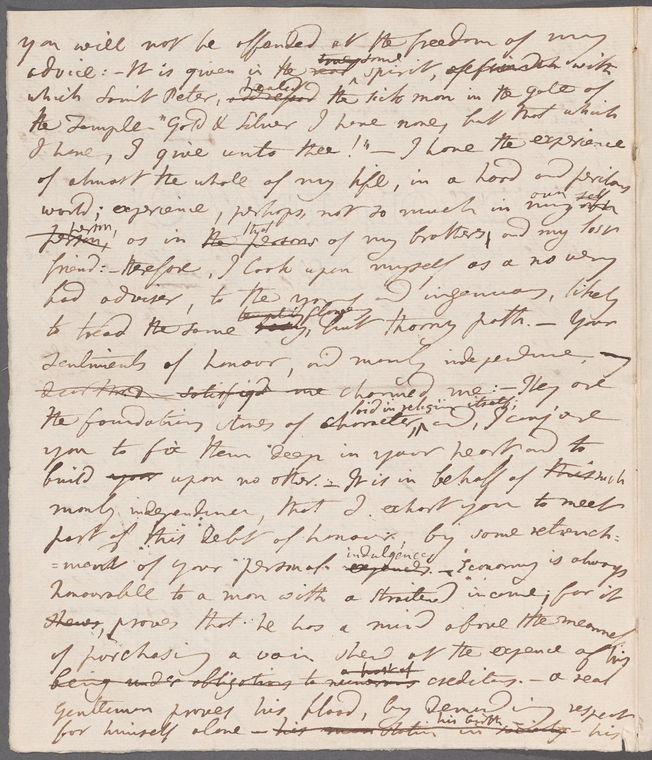 you will not be offended at the freedom of my
advice: - It is given in the same spirit, with
which Saint Peter, healed the sick man in the gate of
the Temple - "Gold & Silver I have none, but that which
I have, I give unto thee!" - I have the experience
of almost the whole of my life, in a hard and perilous
world; experience, perhaps, not so much in my own
person, as in that of my brothers, and my lost
friend: - therefore, I look upon myself as a no very
bad adviser, to the young and ingenuous, likely
to tread the same tempting flowery, but thorny path. - Your
sentiments of honour, and manly independence, -
satisfied me charmed me: - They are
the foundation stones of character, laid in religion itself; and, I conjure
you to fix them deep in your heart and to
build your upon no other. - It is in behalf of this much
manly independence, that I exhort you to meet
part of this "debt of honour", by some retrench=
=ment of your personal indulgences expences. - Economy is always
honourable to a man with a straitened income; for it
shews, proves that he has a mind above the meanness
of purchasing a vain shew at the expence of his
being under obligations to a host of numerous creditors. - a real
gentleman proves his blood, by demanding respect
for himself alone - his birth in society - his